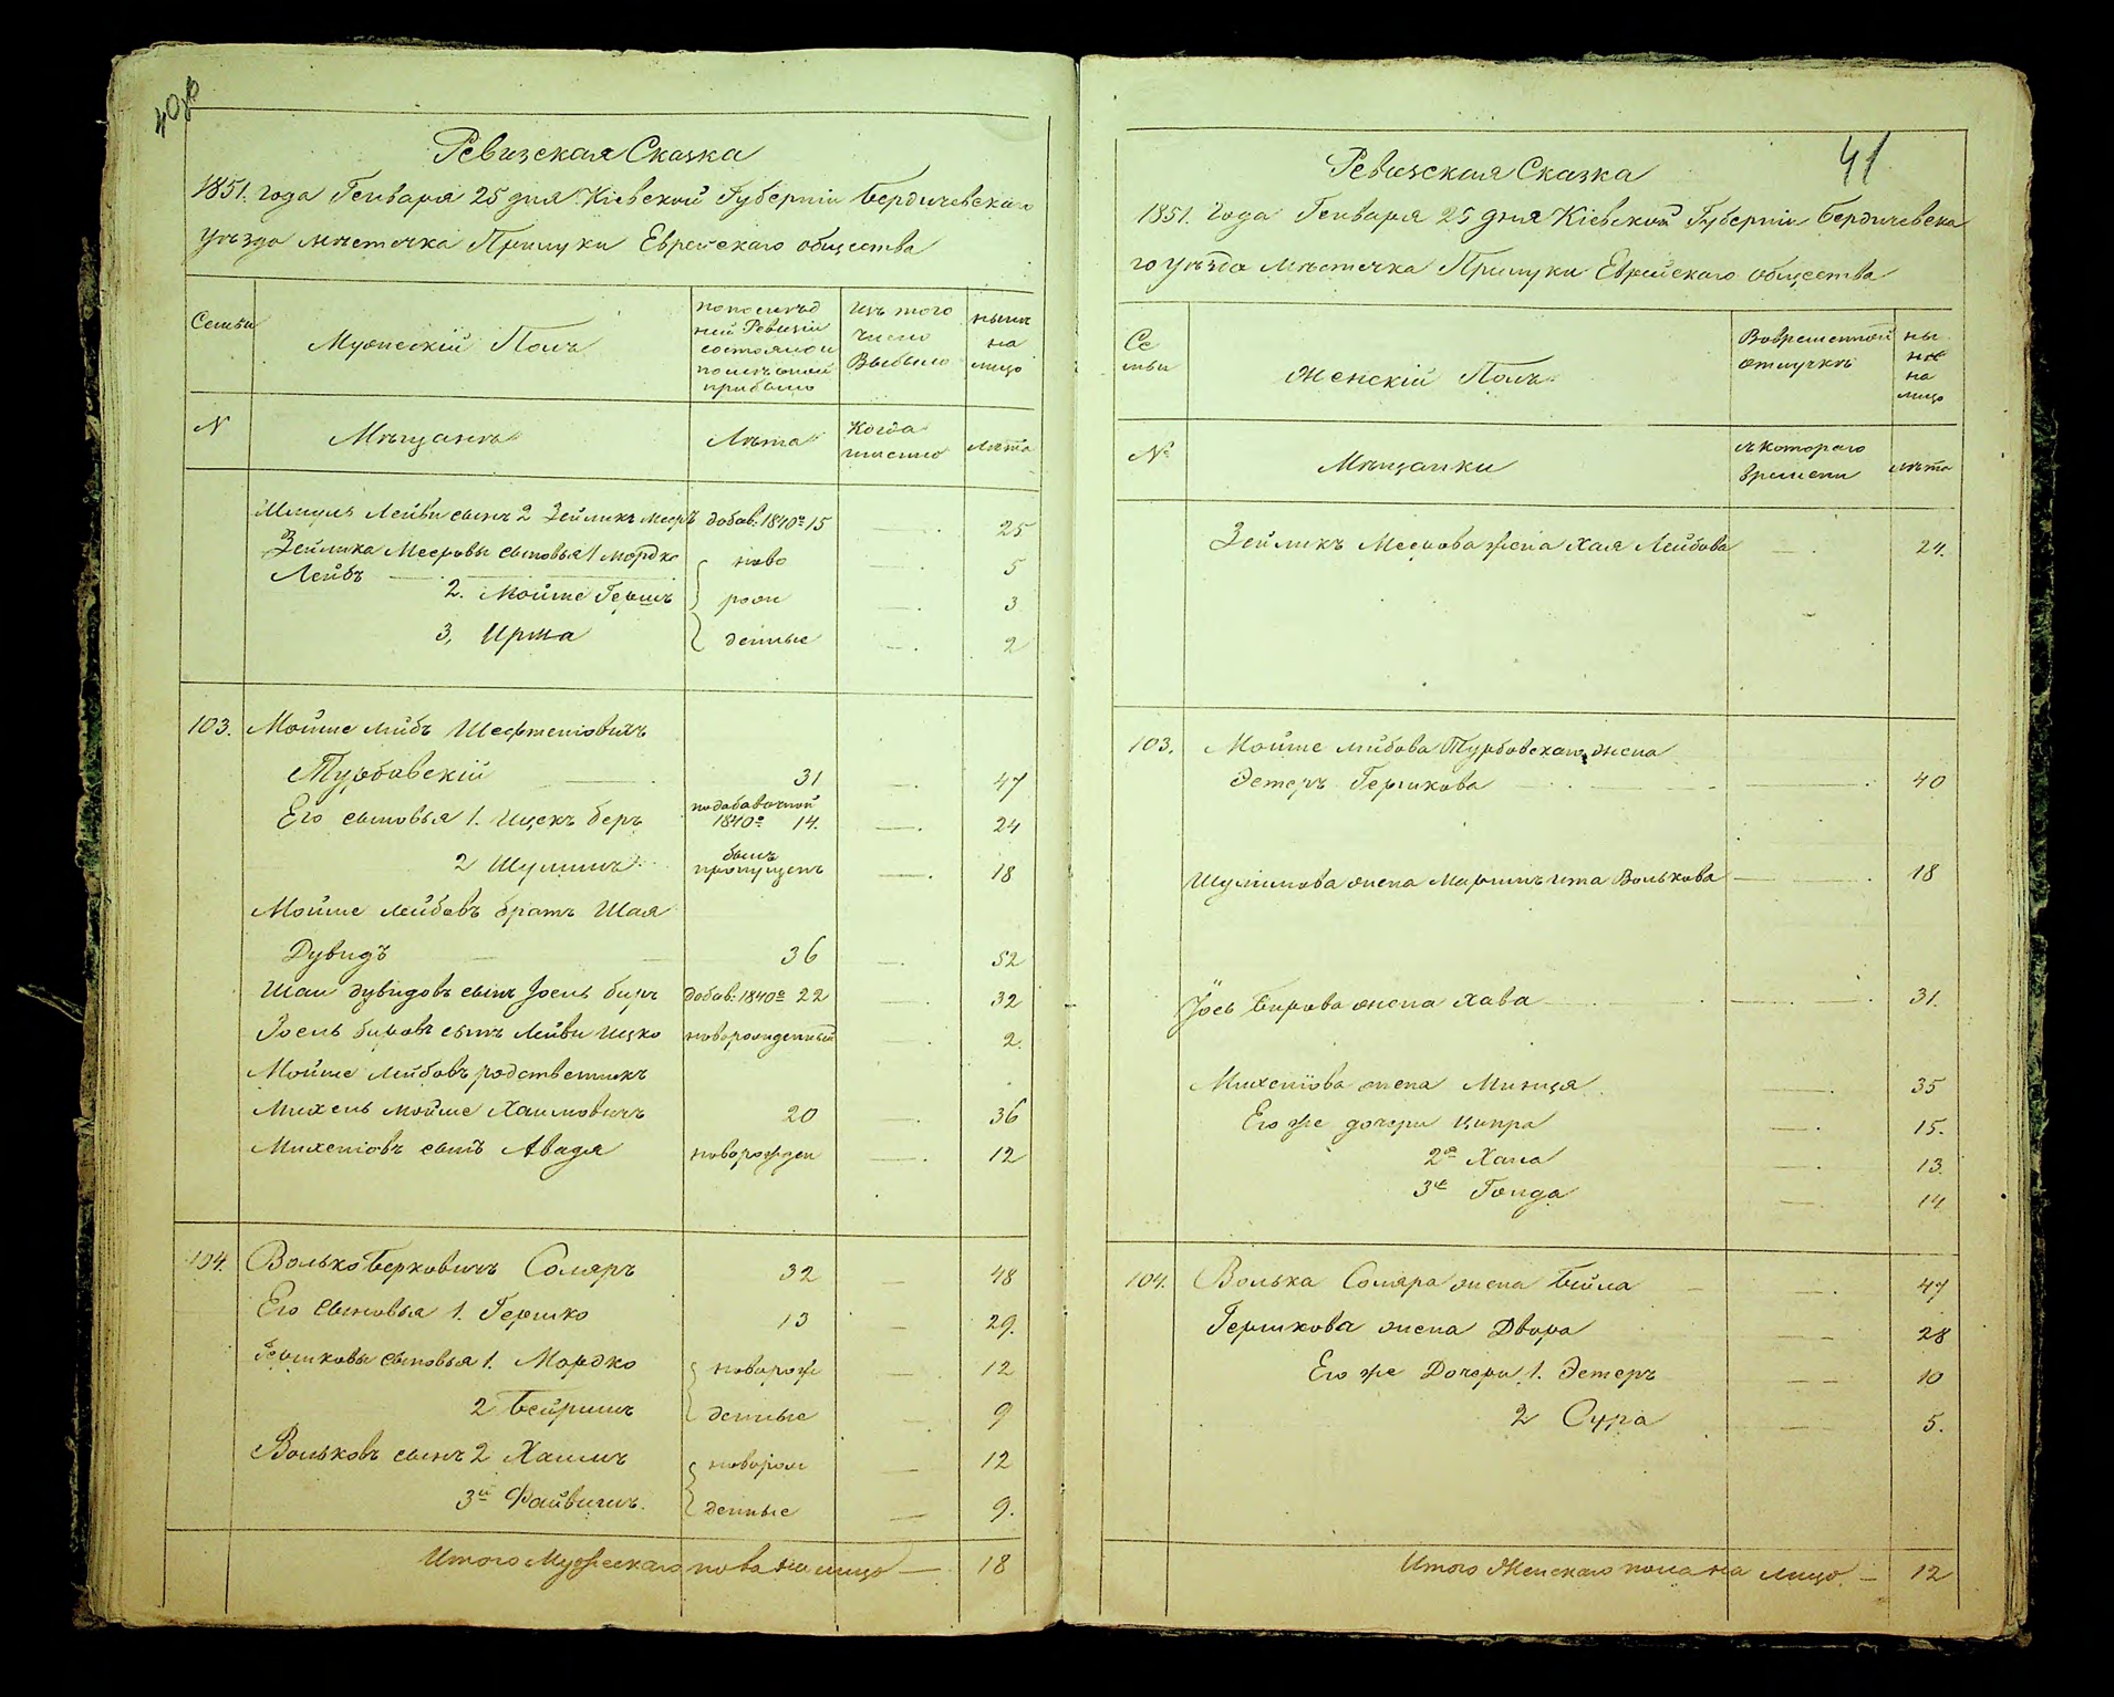 40об
Ревизская Сказка
1851. года Генваря 25 дня Кіевской Губерніи Бердичевскаго
уѣзда мѣстечка Прилуки Еврейскаго общества
Семьи
Мужескій Полъ
По послѣд
ней Ревизіи
состояло и
послѣ оной
прибыло
Изъ того
числа
Выбыло
нынѣ
на
лицо
N
Мѣщанъ
Лѣта
Когда
именно
Лѣта
Шмуль Лейбы сынъ 2 Зейликъ Мееръ добав. 1840го 15 25
Зейлика Мееровы сыновья 1 Мордко ново 5
Лейбъ
2. Мойше Гершъ рож 3
3, Ирша денные 2
103. Мойше Лейбъ Шефтеліовичъ
Турбовскій 31 47
Его сыновья 1. Ицекъ беръ по добавочной 1840го 14. 24
2 Шулимъ былъ пропущенъ 18
Мойше Лейбовъ братъ Шая
Дувидъ 36 52
Шаи Дувидовъ сынъ Іосель биръ добав. 1840го 22 32
Іосель бировъ сынъ Лейви Ицко новорожденный 2.
Мойше Лейбовъ родственникъ
Михель мойше Хаимовичъ 20 36
Михеліовъ сынъ Авадя новорожден 12
104. Волько Берковичъ Соляръ 32 48
Его Сыновья 1. Гершко 13 29.
Гершковы сыновья 1. Мордко новорож 12
2 Бейришъ денные 9
Вольковъ сынъ 2 Хаимъ новорож 12
3й Файвишъ. денные 9.
Итого Мужескаго пола на лицо — 18
41
Ревизская Сказка
1851. Года Генваря 25 дня Кіевской Губерніи Бердичевска
го уѣзда Мѣстечка Прилуки Еврейскаго общества
Се
мьи
Женскій Полъ
Во временной
отлучкѣ
ны
нѣ
на
лицо
№
Мѣщанки
съ котораго
времени
лѣта
Зейликъ Меерова жена Хая Лейбова 24.
103. Мойше Лейбова Турбовскаго жена
Эстеръ Гершкова 40
Шулимова жена Маріимъ ита Волькова 18
Іось Бирова жена Хава 31.
Михеліова жена Минця 35
Его же дочери Ципра 15.
2я Хана 13.
3я Голда 14
104. Волька Соляра жена Бейла 47
Гершкова жена Двора 28
Его же Дочери 1. Эстеръ 10
2 Сура 5.
Итого Женскаго пола на лицо — 12